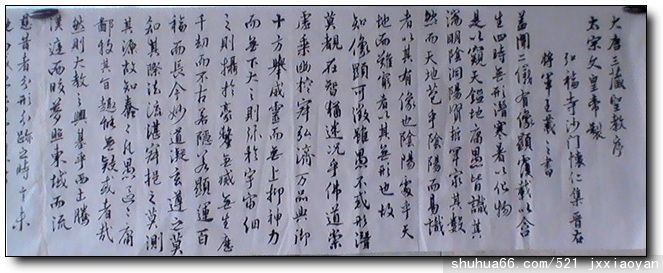 大唐三藏聖教序
太宗文皇帝製
弘福寺沙門懷仁集晉右
將軍王羲之書
蓋聞二儀有像顯覆載以含
生四時無形潛寒暑以化物
是以窺天鑑地庸愚皆識其
端明陰洞陽賢哲罕窮其數
然而天地苞乎陰陽而易識
者以其有像也陰陽處乎天
地而難窮者以其無形也故
知像顯可徵雖愚不惑形潛
莫覩在智猶迷況乎佛道崇
虛乘幽控寂弘濟万品典御
十方舉威靈而無上抑神力
而無下大之則彌於宇宙細
之則攝於豪釐無滅無生歷
千劫而不古若隱若顯運百
福而長今妙道凝玄遵之莫
知其際法流湛寂挹之莫測
其源故知蠢蠢凡愚區區庸
鄙投其旨趣能無疑或者哉
然則大教之興基乎西土騰
漢庭而皎夢照東域而流
慈昔者分形分跡之時言未
shuhua66.com/521 jxxiaoyan